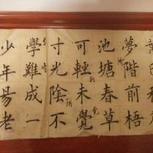 夢階前梧
池塘春草
可輕未覺
寸光陰不
學難成一
少年易老